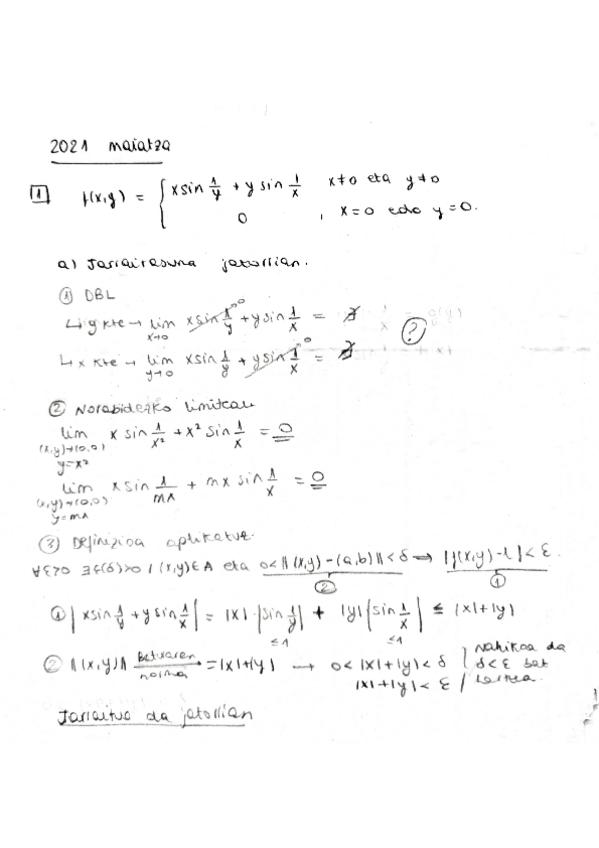 2021 maiatza
1 f(x,y) = { x sin 1/y + y sin 1/x x≠0 eta y≠0
0 , x=0 edo y=0.
a) Jarraitasuna jatorrian.
① DBL
↳ y kte → lim x→0 x sin 1/y + y sin 1/x = ∄
↳ x kte → lim y→0 x sin 1/y + y sin 1/x = ∄ ?
② Norabidezko limiteak
lim (x,y)→(0,0) y=x² x sin 1/x² + x² sin 1/x = 0
lim (x,y)→(0,0) y=mx x sin 1/mx + mx sin 1/x = 0
③ Definizioa aplikatuz.
∀ε>0 ∃δ(ε)>0 / (x,y)∈A eta 0<‖(x,y)-(a,b)‖<δ → |f(x,y)-l|<ε.
② ①
① |x sin 1/y + y sin 1/x| = |x|·|sin 1/y| + |y||sin 1/x| ≤ |x|+|y|
≤1 ≤1
② ‖(x,y)‖ Baturaren norma = |x|+|y| → 0<|x|+|y|<δ Nahikoa da
|x|+|y|<ε δ<ε bat hartzea.
Jarraitua da jatorrian